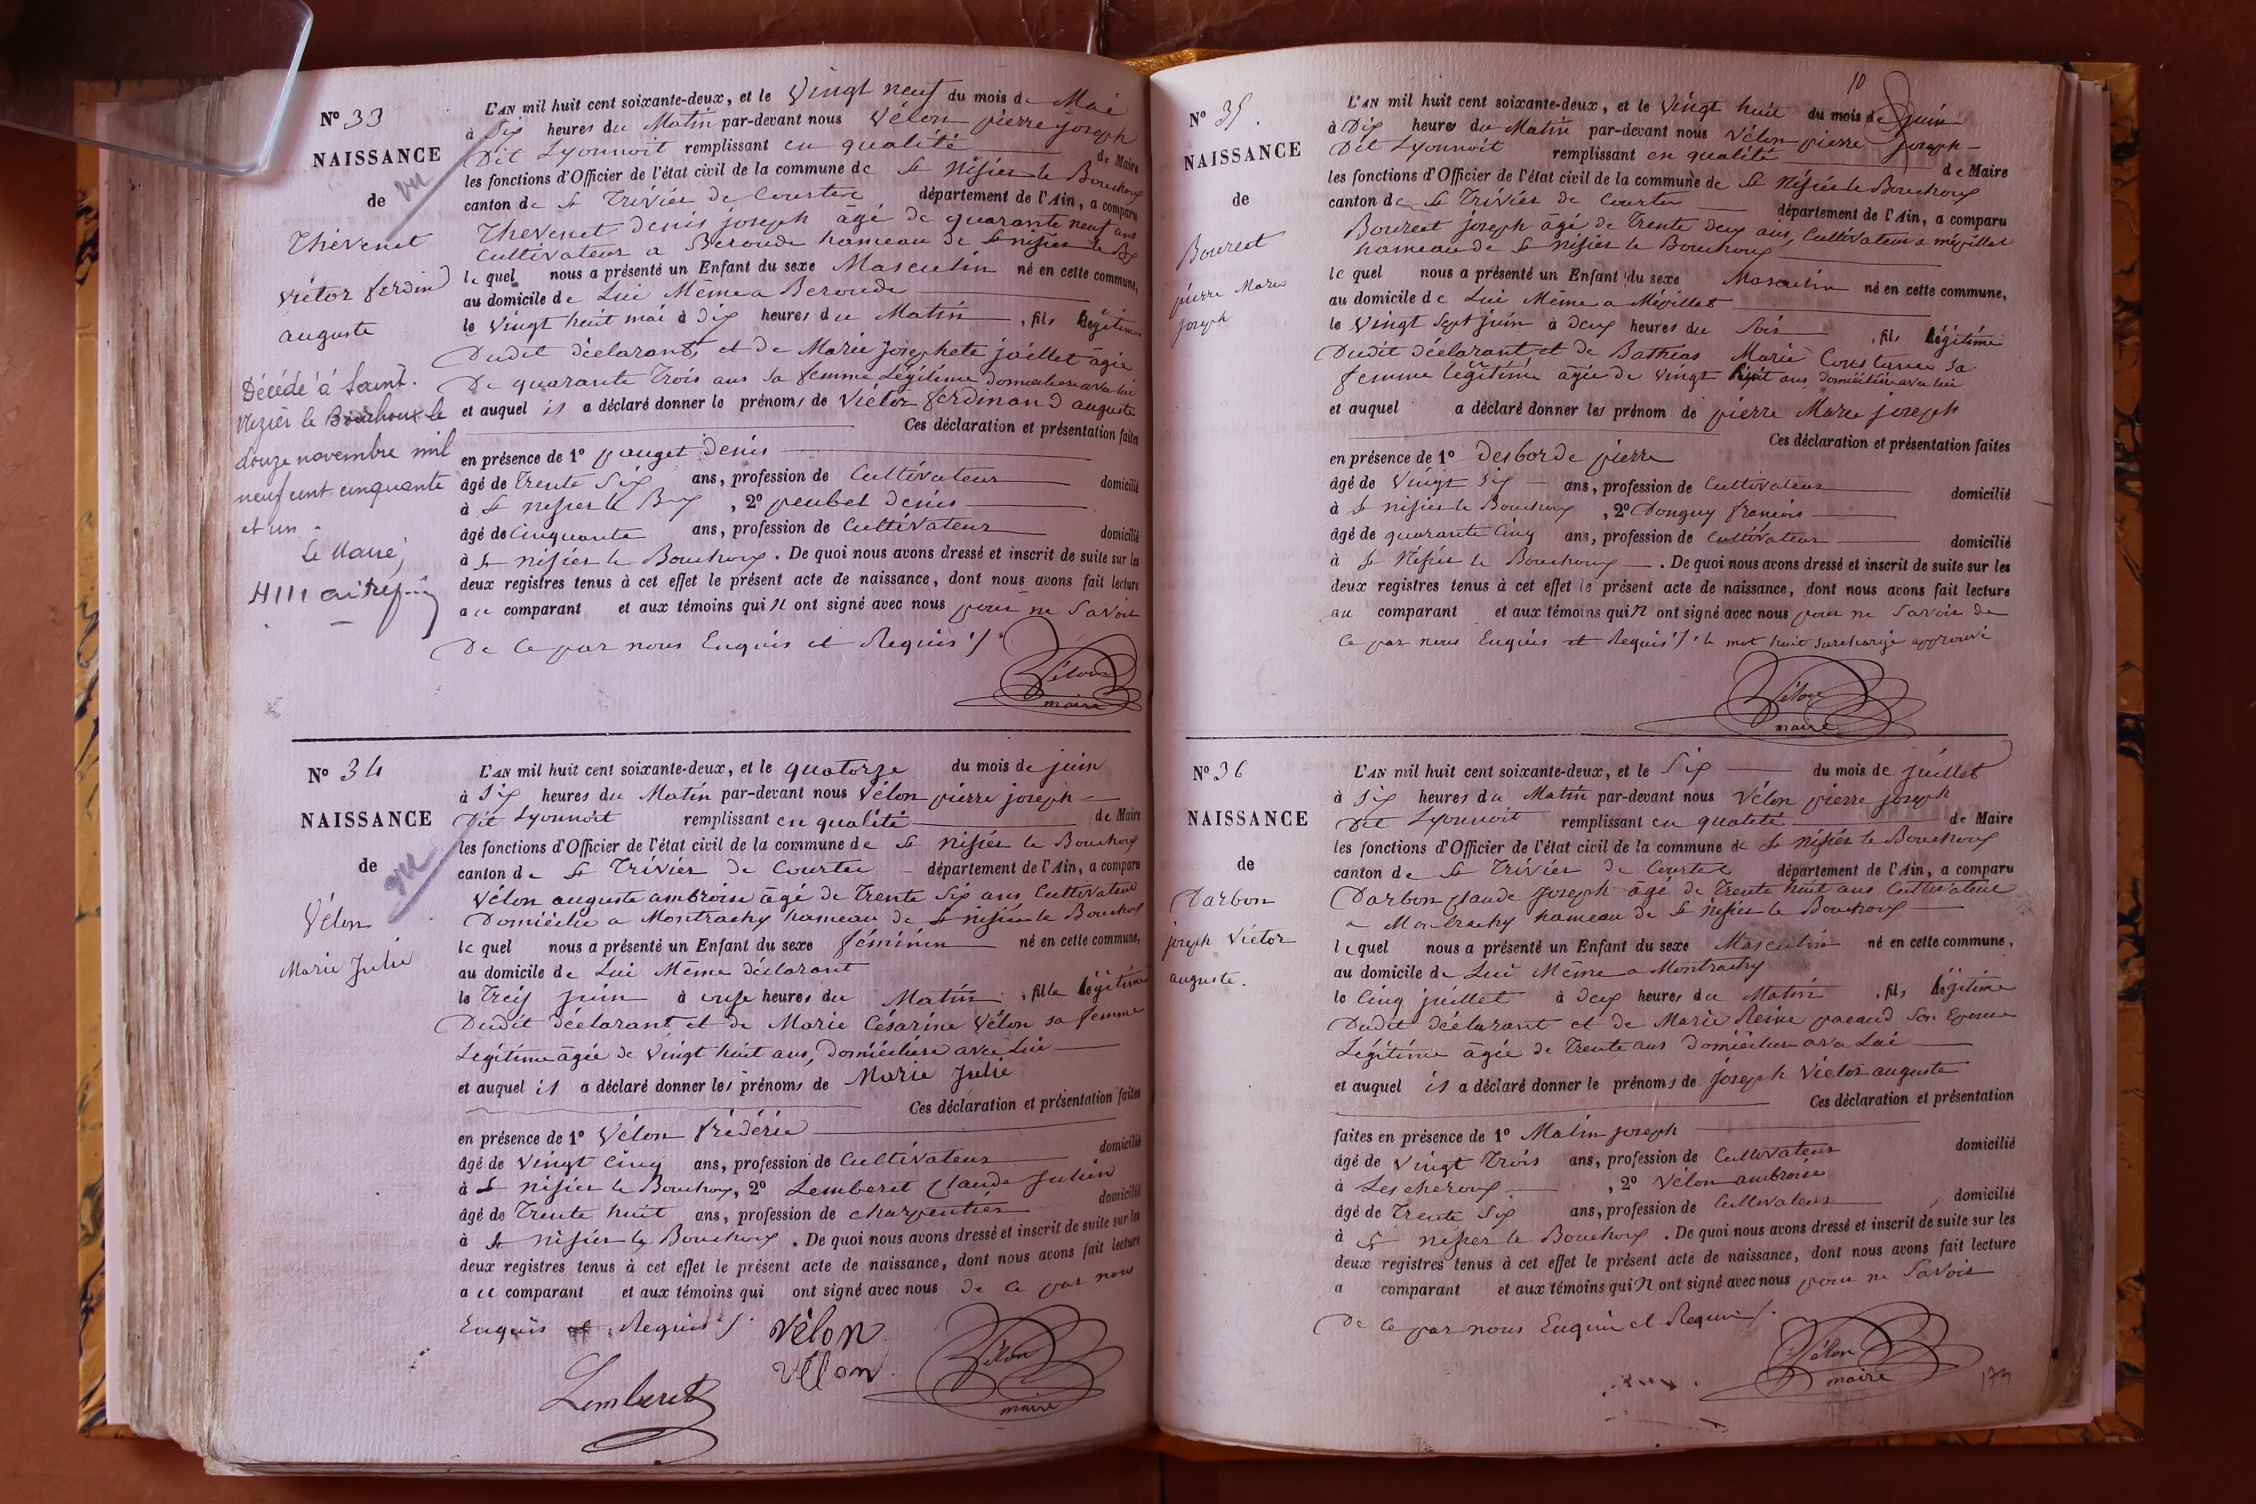 N° 33
NAISSANCE
de
vu
Thévenet
victor ferdind
auguste
Décédé à Saint.
Nizier le Bouchoux le
douze novembre mil
neuf cent cinquante
et un.
Le Maire,
L'AN mil huit cent soixante-deux, et le Vingt neuf du mois de Mai
à Six heures du Matin par-devant nous Vélon pierre joseph
Dit Lyonnoit remplissant en qualité de Maire
les fonctions d'Officier de l'état civil de la commune de St Nisier le Bouchoux
canton de St Trivier de Courtes département de l'Ain, a comparu
Thevenet denis joseph âgé de quarante neuf ans
Cultivateur a Beroude hameau de St nisier le Bx
le quel nous a présenté un Enfant du sexe Masculin né en cette commune,
au domicile de Lui Même a Beroude
le Vingt huit mai à dix heures du Matin, fils légitime
Dudit déclarant, et de Marie Josephete jaillet âgée
De quarante trois ans sa femme Légitime domiciliée avec lui
et auquel il a déclaré donner le prénoms de Victor ferdinand auguste
Ces déclaration et présentation faites
en présence de 1° pauget denis
âgé de Trente Six ans, profession de Cultivateur domicilié
à St nisier le Bx, 2° peubel denis
âgé de Cinquante ans, profession de Cultivateur domicilié
à St nisier le Bouchoux. De quoi nous avons dressé et inscrit de suite sur les
deux registres tenus à cet effet le présent acte de naissance, dont nous avons fait lecture
a ce comparant et aux témoins qui n ont signé avec nous pour ne Savoir
De Ce par nous Enquis et Requis ./.
Vélon
maire
N° 34
NAISSANCE
de
vu
Vélon
Marie Julie
L'AN mil huit cent soixante-deux, et le quatorze du mois de juin
à Six heures du Matin par-devant nous Vélon pierre joseph
Dit Lyonnoit remplissant en qualité de Maire
les fonctions d'Officier de l'état civil de la commune de St nisier le Bouchoux
canton de St Trivier de Courtes département de l'Ain, a comparu
Vélon auguste ambroise âgé de Trente Six ans Cultivateur
Domicilié a Montrachy hameau de St nisier le Bouchoux
le quel nous a présenté un Enfant du sexe féminin né en cette commune,
au domicile de Lui Même déclarant
le Treiz juin à onze heures du Matin, fille légitime
Dudit déclarant, et de Marie Césarine Vélon sa femme
Légitime âgée de Vingt huit ans, Domiciliée avec Lui
et auquel il a déclaré donner les prénoms de Marie Julie
Ces déclaration et présentation faites
en présence de 1° Vélon frédéric
âgé de Vingt Cinq ans, profession de Cultivateur domicilié
à St nisier le Bouchoux, 2° Lemberet Claude Julien
âgé de Trente huit ans, profession de charpentier domicilié
à St nisier le Bouchoux. De quoi nous avons dressé et inscrit de suite sur les
deux registres tenus à cet effet le présent acte de naissance, dont nous avons fait lecture
a ce comparant et aux témoins qui ont signé avec nous de Ce par nous
Enquis et Requis ./.
Vélon
Vélon
Lemberet
Vélon
maire
10
N° 35.
NAISSANCE
de
Bourcet
pierre Marie
joseph
L'AN mil huit cent soixante-deux, et le Vingt huit du mois de juin
à Dix heures du Matin par-devant nous Vélon pierre joseph
Dit Lyonnoit remplissant en qualité de Maire
les fonctions d'Officier de l'état civil de la commune de St Nisier le Bouchoux
canton de St Trivier de Courtes département de l'Ain, a comparu
Bourcet joseph âgé de Trente deux ans, Cultivateur a mézillet
hameau de St nisier le Bouchoux
le quel nous a présenté un Enfant du sexe Masculin né en cette commune,
au domicile de Lui Même a Mézillet
le Vingt Sept juin à deux heures du Soir, fils légitime
Dudit déclarant et de Bathias Marie Constance Sa
femme légitime âgée de vingt huit ans domiciliée avec lui
et auquel a déclaré donner les prénom de pierre Marie joseph
Ces déclaration et présentation faites
en présence de 1° Desborde pierre
âgé de Vingt Six ans, profession de Cultivateur domicilié
à St nisier le Bouchoux, 2° Donguy francois
âgé de quarante Cinq ans, profession de Cultivateur domicilié
à St Nisier le Bouchoux. De quoi nous avons dressé et inscrit de suite sur les
deux registres tenus à cet effet le présent acte de naissance, dont nous avons fait lecture
au comparant et aux témoins qui n ont signé avec nous pour ne Savoir de
Ce par nous Enquis et Requis ./. le mot huit surchargé approuvé
Vélon
maire
N° 36
NAISSANCE
de
Darbon
joseph Victor
auguste.
L'AN mil huit cent soixante-deux, et le Six du mois de juillet
à Six heures du Matin par-devant nous Vélon pierre joseph
Dit Lyonnoit remplissant en qualité de Maire
les fonctions d'Officier de l'état civil de la commune de St nisier le Bouchoux
canton de St Trivier de Courtes département de l'Ain, a comparu
Darbon Claude Joseph âgé de Trente huit ans Cultivateur
a Montrachy hameau de St Nisier le Bouchoux
lequel nous a présenté un Enfant du sexe Masculin né en cette commune,
au domicile de Lui Même a Montrachy
le Cinq juillet à deux heures du Matin, fils légitime
Dudit déclarant et de Marie Reine pacaud Son Epouse
Légitime âgée de Trente ans domiciliée avec Lui
et auquel il a déclaré donner le prénoms de joseph Victor auguste
Ces déclaration et présentation
faites en présence de 1° Malin joseph
âgé de Vingt Trois ans, profession de Cultivateur domicilié
à Lescheroux, 2° Vélon ambroise
âgé de Trente Six ans, profession de Cultivateur domicilié
à St nisier le Bouchoux. De quoi nous avons dressé et inscrit de suite sur les
deux registres tenus à cet effet le présent acte de naissance, dont nous avons fait lecture
a comparant et aux témoins qui n ont signé avec nous pour ne Savoir
De Ce par nous Enquis et Requis ./.
Vélon
maire